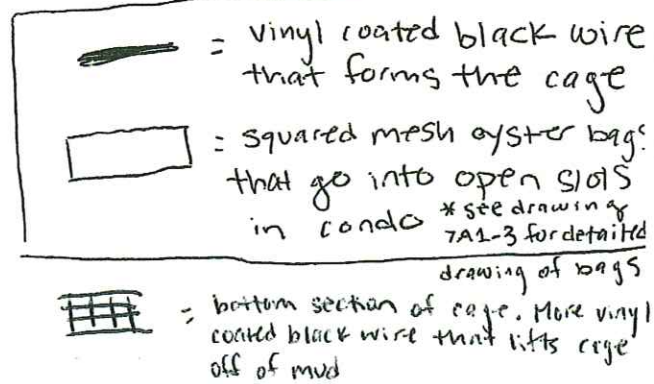 = vinyl coated black wire
that forms the cage
= squared mesh oyster bags
that go into open slots
in condo * see drawing
7A1-3 for detailed
drawing of bags
= bottom section of cage. More vinyl
coated black wire that lifts cage
off of mud